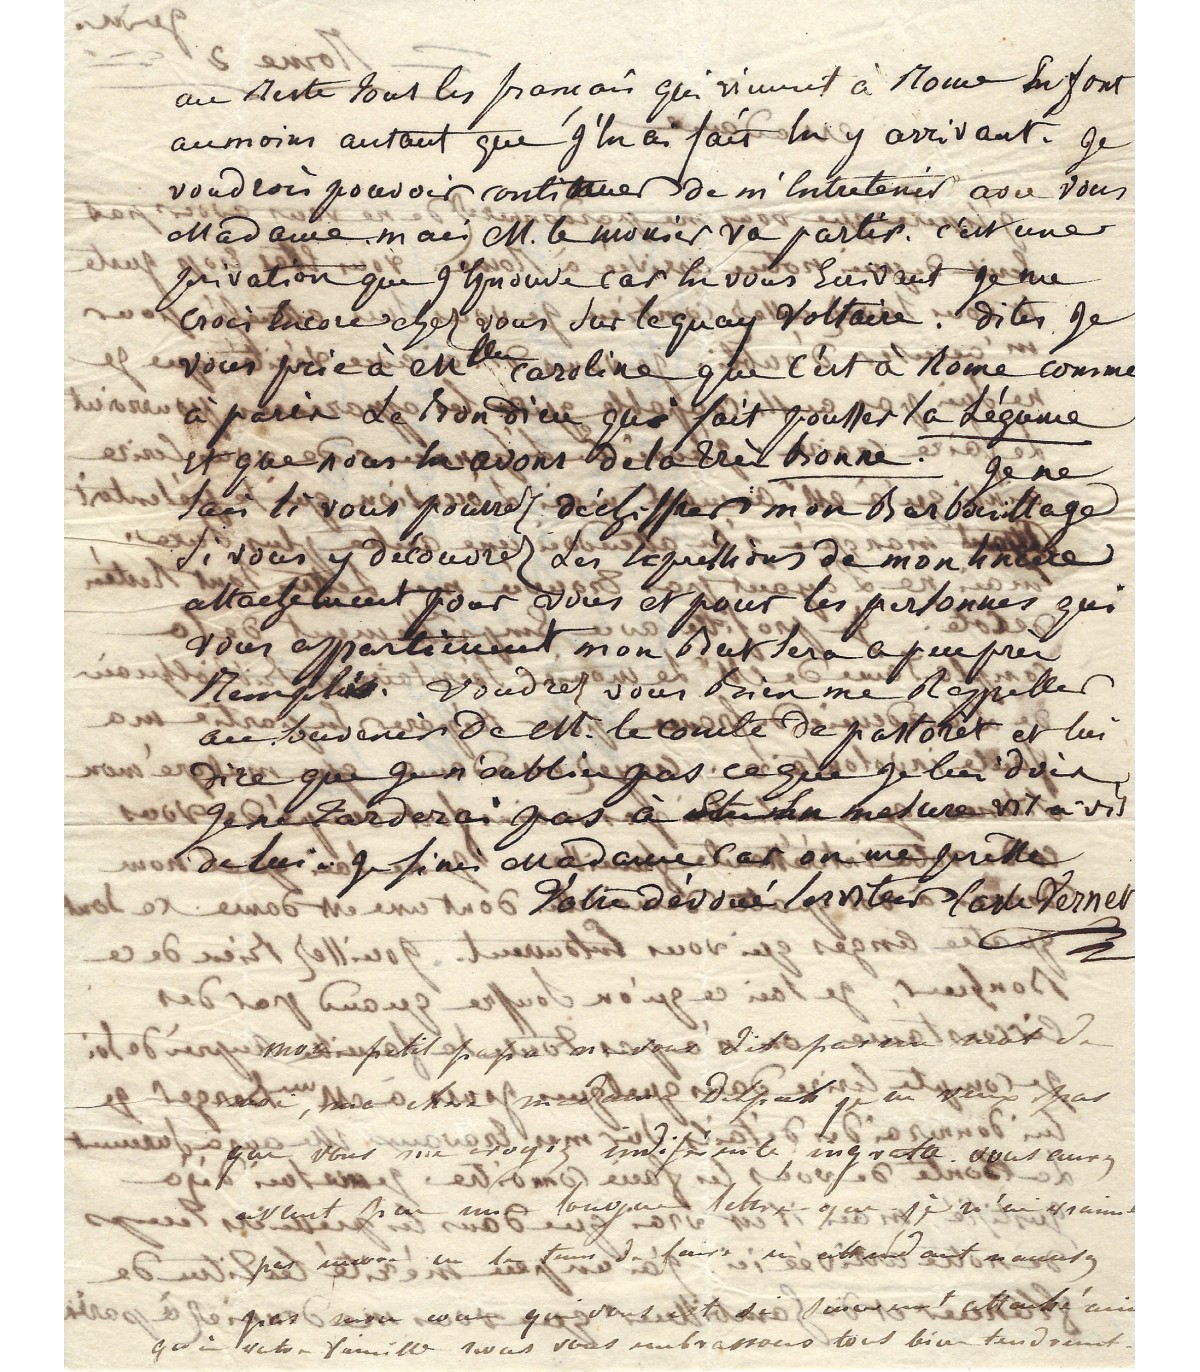 au Reste tous les francais qui vivent à Rome En font
aumoins autant que j'En ai fait En y arrivant. je
voudrois pouvoir continuer de m'Entretenir avec vous
Madame. mais M. le monier va partir. c'est une
privation que j'Eprouve car En vous Ecrivant je me
crois Encore chez vous sur le quay Voltaire. dites je
vous prie à Mlle Caroline que c'est a Rome comme
à paris Le bon dieu qui fait pousser la Légume
et que nous En avons de la très bonne. je ne
sais si vous pourrez déchiffrer mon Barbouillage
si vous y découvrez Les Expressions de mon sincère
attachement pour vous et pour les personnes qui
vous appartiennent mon But sera apeuprès
Rempli. voudrez vous bien me Rappeller
au souvenir de M. le comte de pastoret et lui
dire que je n'oublie pas ce que je lui dois
je ne tarderai pas à En mesure vis a vis
de lui. je finis Madame car on me presse
Votre dévoué serviteur Carle Vernet
mon petit papa ne vous dit pas un mot de
moi, ma chere madame je ne veux pas
que vous me croyez indiférente, ingrate. vous aurez
avant peu une longue lettre que je n'ai vraiment
pas encore eu le tems de faire en attendant
pas mon coeur qui vous est si sincerement attaché ainsi
qu'a votre famille nous vous embrassons tous bien tendrement.